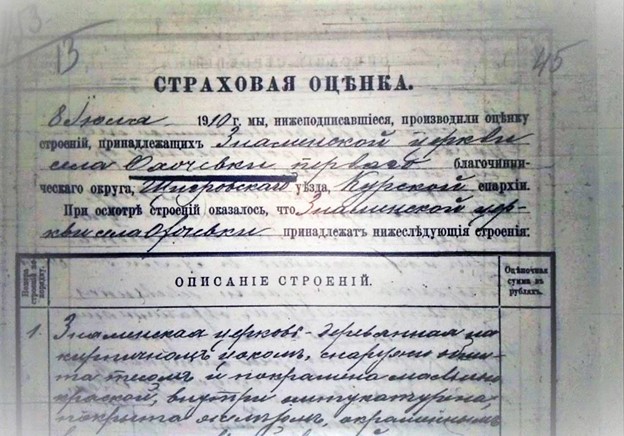 13
45
СТРАХОВАЯ ОЦѢНКА.
8 Іюля 1910 г. мы, нижеподписавшіеся, производили оцѣнку
строеній, принадлежащихъ Знаменской церкви
села Охочевки перваго благочинни-
ческаго округа, Щигровскаго уѣзда, Курской епархіи.
При осмотрѣ строеній оказалось, что Знаменской цер-
кви села Охочевки принадлежатъ нижеслѣдующія строенія:
Номера строеній по порядку.
ОПИСАНІЕ СТРОЕНІЙ.
Оцѣночная сумма въ рубляхъ.
1. Знаменская церковь - деревянная на
кирпичномъ цоколѣ, снаружи обши-
та тесомъ и покрашена масляной
краской, внутри оштукатурена,
покрыта желѣзомъ, окрашеннымъ